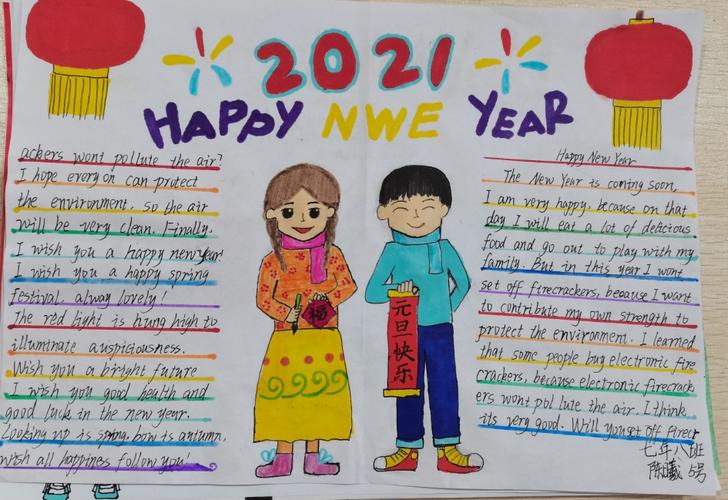 2021
HAPPY NWE YEAR
ackers wont pollute the air?
I hope every on can protect
the environment. so the air
will be very clean. Finally.
I wish you a happy newyear!
I wish you a happy spring
festival. alway lovely!
The red light is hung high to
illuminate auspiciousness.
Wish you a bright future
I wish you good health and
good luck in the new year.
Looking up is spring. bow is autumn,
wish all happiness follow you!
福
元旦快乐
Happy New Year
The New Year is coming soon,
I am very happy. because on that
day I will eat a lot of delicious
food and go out to play with my
family. But in this year I wont
set off firecrackers, because I want
to contribute my own strength to
protect the environment. I learned
that some people bug electronic fire
crackers, because electronic firecrack
ers wont pol lute the air. I think
its very good. Will you set off firecr
七年八班
陈曦 5号